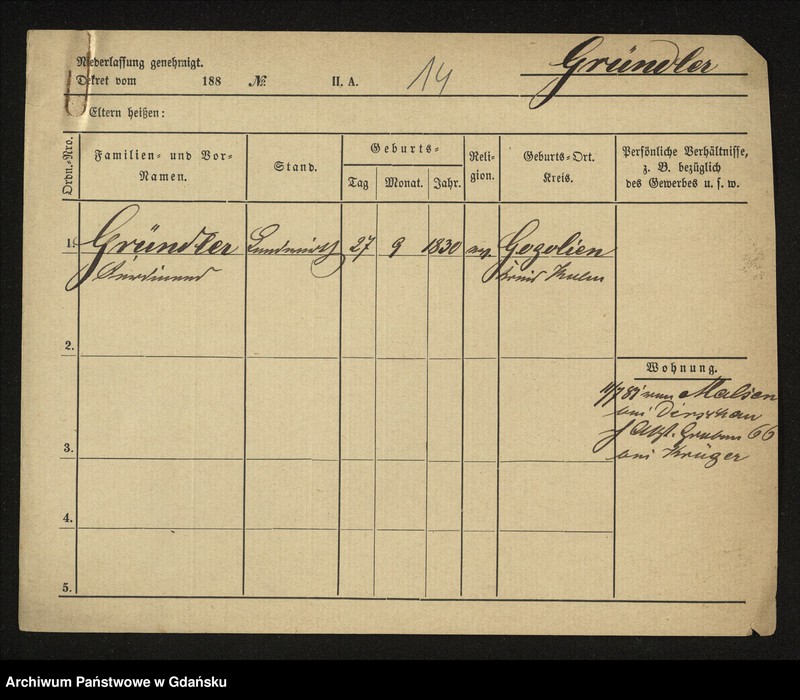 Niederlassung genehmigt.
Dekret vom 188 No. II. A. 14
Gründler
Eltern heißen:
Ordn.-Nro.
Familien- und Vor-Namen.
Stand.
Geburts-
Tag Monat. Jahr.
Reli-gion.
Geburts-Ort.
Kreis.
Persönliche Verhältnisse,
z. B. bezüglich
des Gewerbes u. s. w.
1. Gründler Landwirth 27 9 1830 ev. Gogolien
Ferdinand Kreis Kulm
2.
Wohnung.
11/7 85 von Malsen
bei Dirschau
Altst. Graben 66
bei Krüger
3.
4.
5.
Archiwum Państwowe w Gdańsku